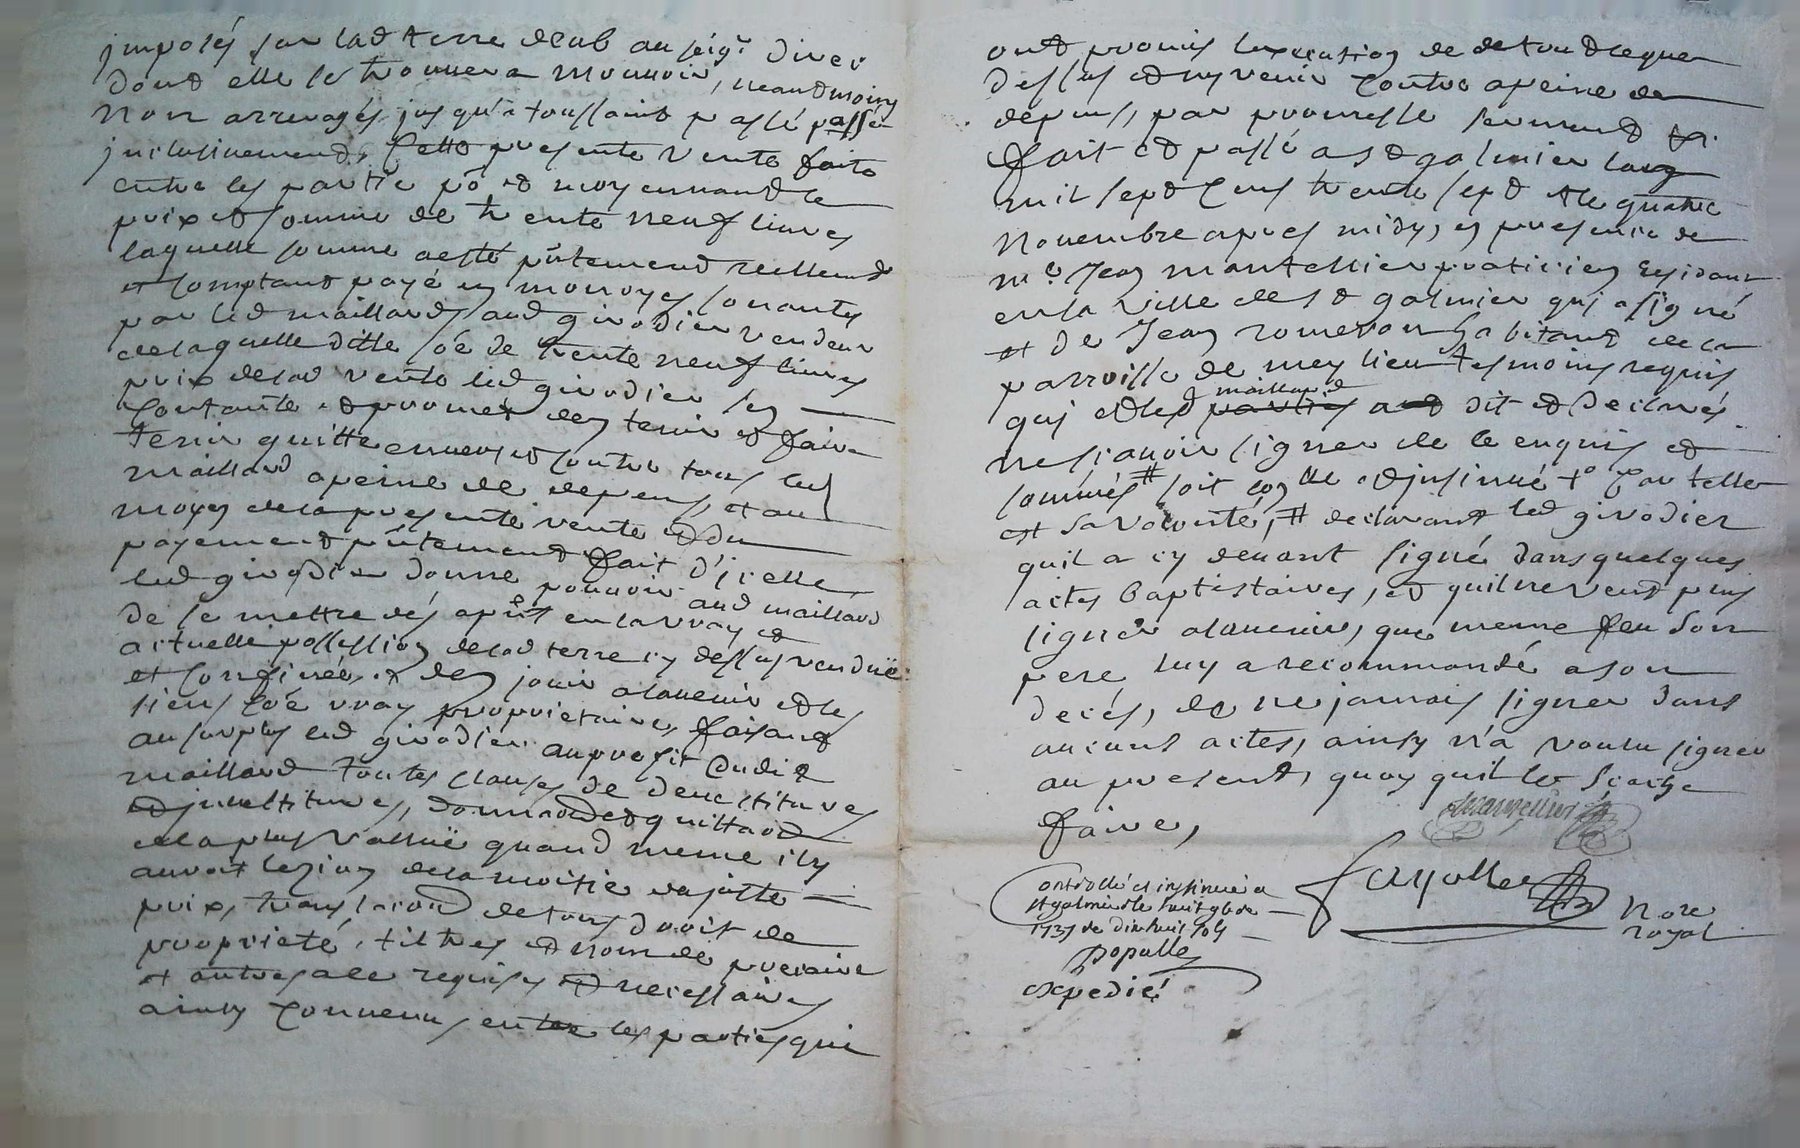 imposés sur lad terre deub au seigr direc
dont elle se trouvera mouvoir, neantmoins
non arreragés jusqu'a toussaint passé passé
inclusivement, Cette presente vente faite
entre les partie pō et moyennant le
prix et somme de trente neuf livres
laquelle somme a esté pñtement reellemt
et comptant payé en monoyes sonantes
par led maillard aud girodier vendeur
de laquelle ditte soê de trente neuf livres
prix de lad vente led girodier sen
contante et promet den tenir et faire
tenir quitte envers et contre tous led
maillard a peine de depens, et au
moyen de la presente vente et du
payement pñtement fait d'icelle
led girodier donne pouvoir aud maillard
de se mettre dés apñt en la vray et
actuelle possession de lad terre cy dessus venduë
et confinée, et den jouir a lavenir et les
siens coê vray proprietaire, faisant
au surplus led girodier au profit dudit
maillard toutes clauses de devestitures
et investitures, donnant et quittant
de la plus valluë quand meme il y
auroit lezion de la moitié du juste
prix, translation de tous droit de
proprieté, tiltres et nom de precaire
et autres a ce requises et necessaires
ainsy convenu entre les parties qui
ont promis lexecution de de tout ce que
dessus et ny venir contre a peine de
depens, par promesse serment &.
fait et passé a st galmier lan
mil sept cens trente sept et le quatre
novembre apres midy, en presence de
me Jean mantellier praticien residant
en la ville de st galmier qui a signé
et de Jean romeron habitant de la
parroisse de meylieu tesmoins requis
qui et led maillard a dit et declarés
ne scavoir signer de ce enquis et
sommés # soit con^lle et insinué to Car telle
est sa volonté, # declarant led girodier
quil a cy devant signé dans quelques
actes baptistaires, et quil ne veut plus
signer a lavenir, que meme feu son
pere luy a recommandé a son
decés, de ne jamais signer dans
aucuns actes, ainsy n'a voulu signer
au present, quoy quil le scache
faire,
Mantellier
Fayolle
Nore
royal
Controllé et insinué a
st galmier le huit 9bre
1737 Re dix huit sols
populle
expedié